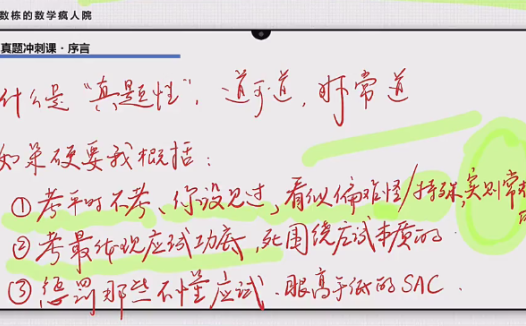 数栋的数学疯人院
真题冲刺课·序言
什么是“真题性”,道可道,非常道
如果硬要我概括:
①考平时不考、你没见过,看似偏难怪/特殊,实则常规
②考最体现应试功底,死围绕应试本质的.
③惩罚那些不懂应试.眼高手低的SAC.